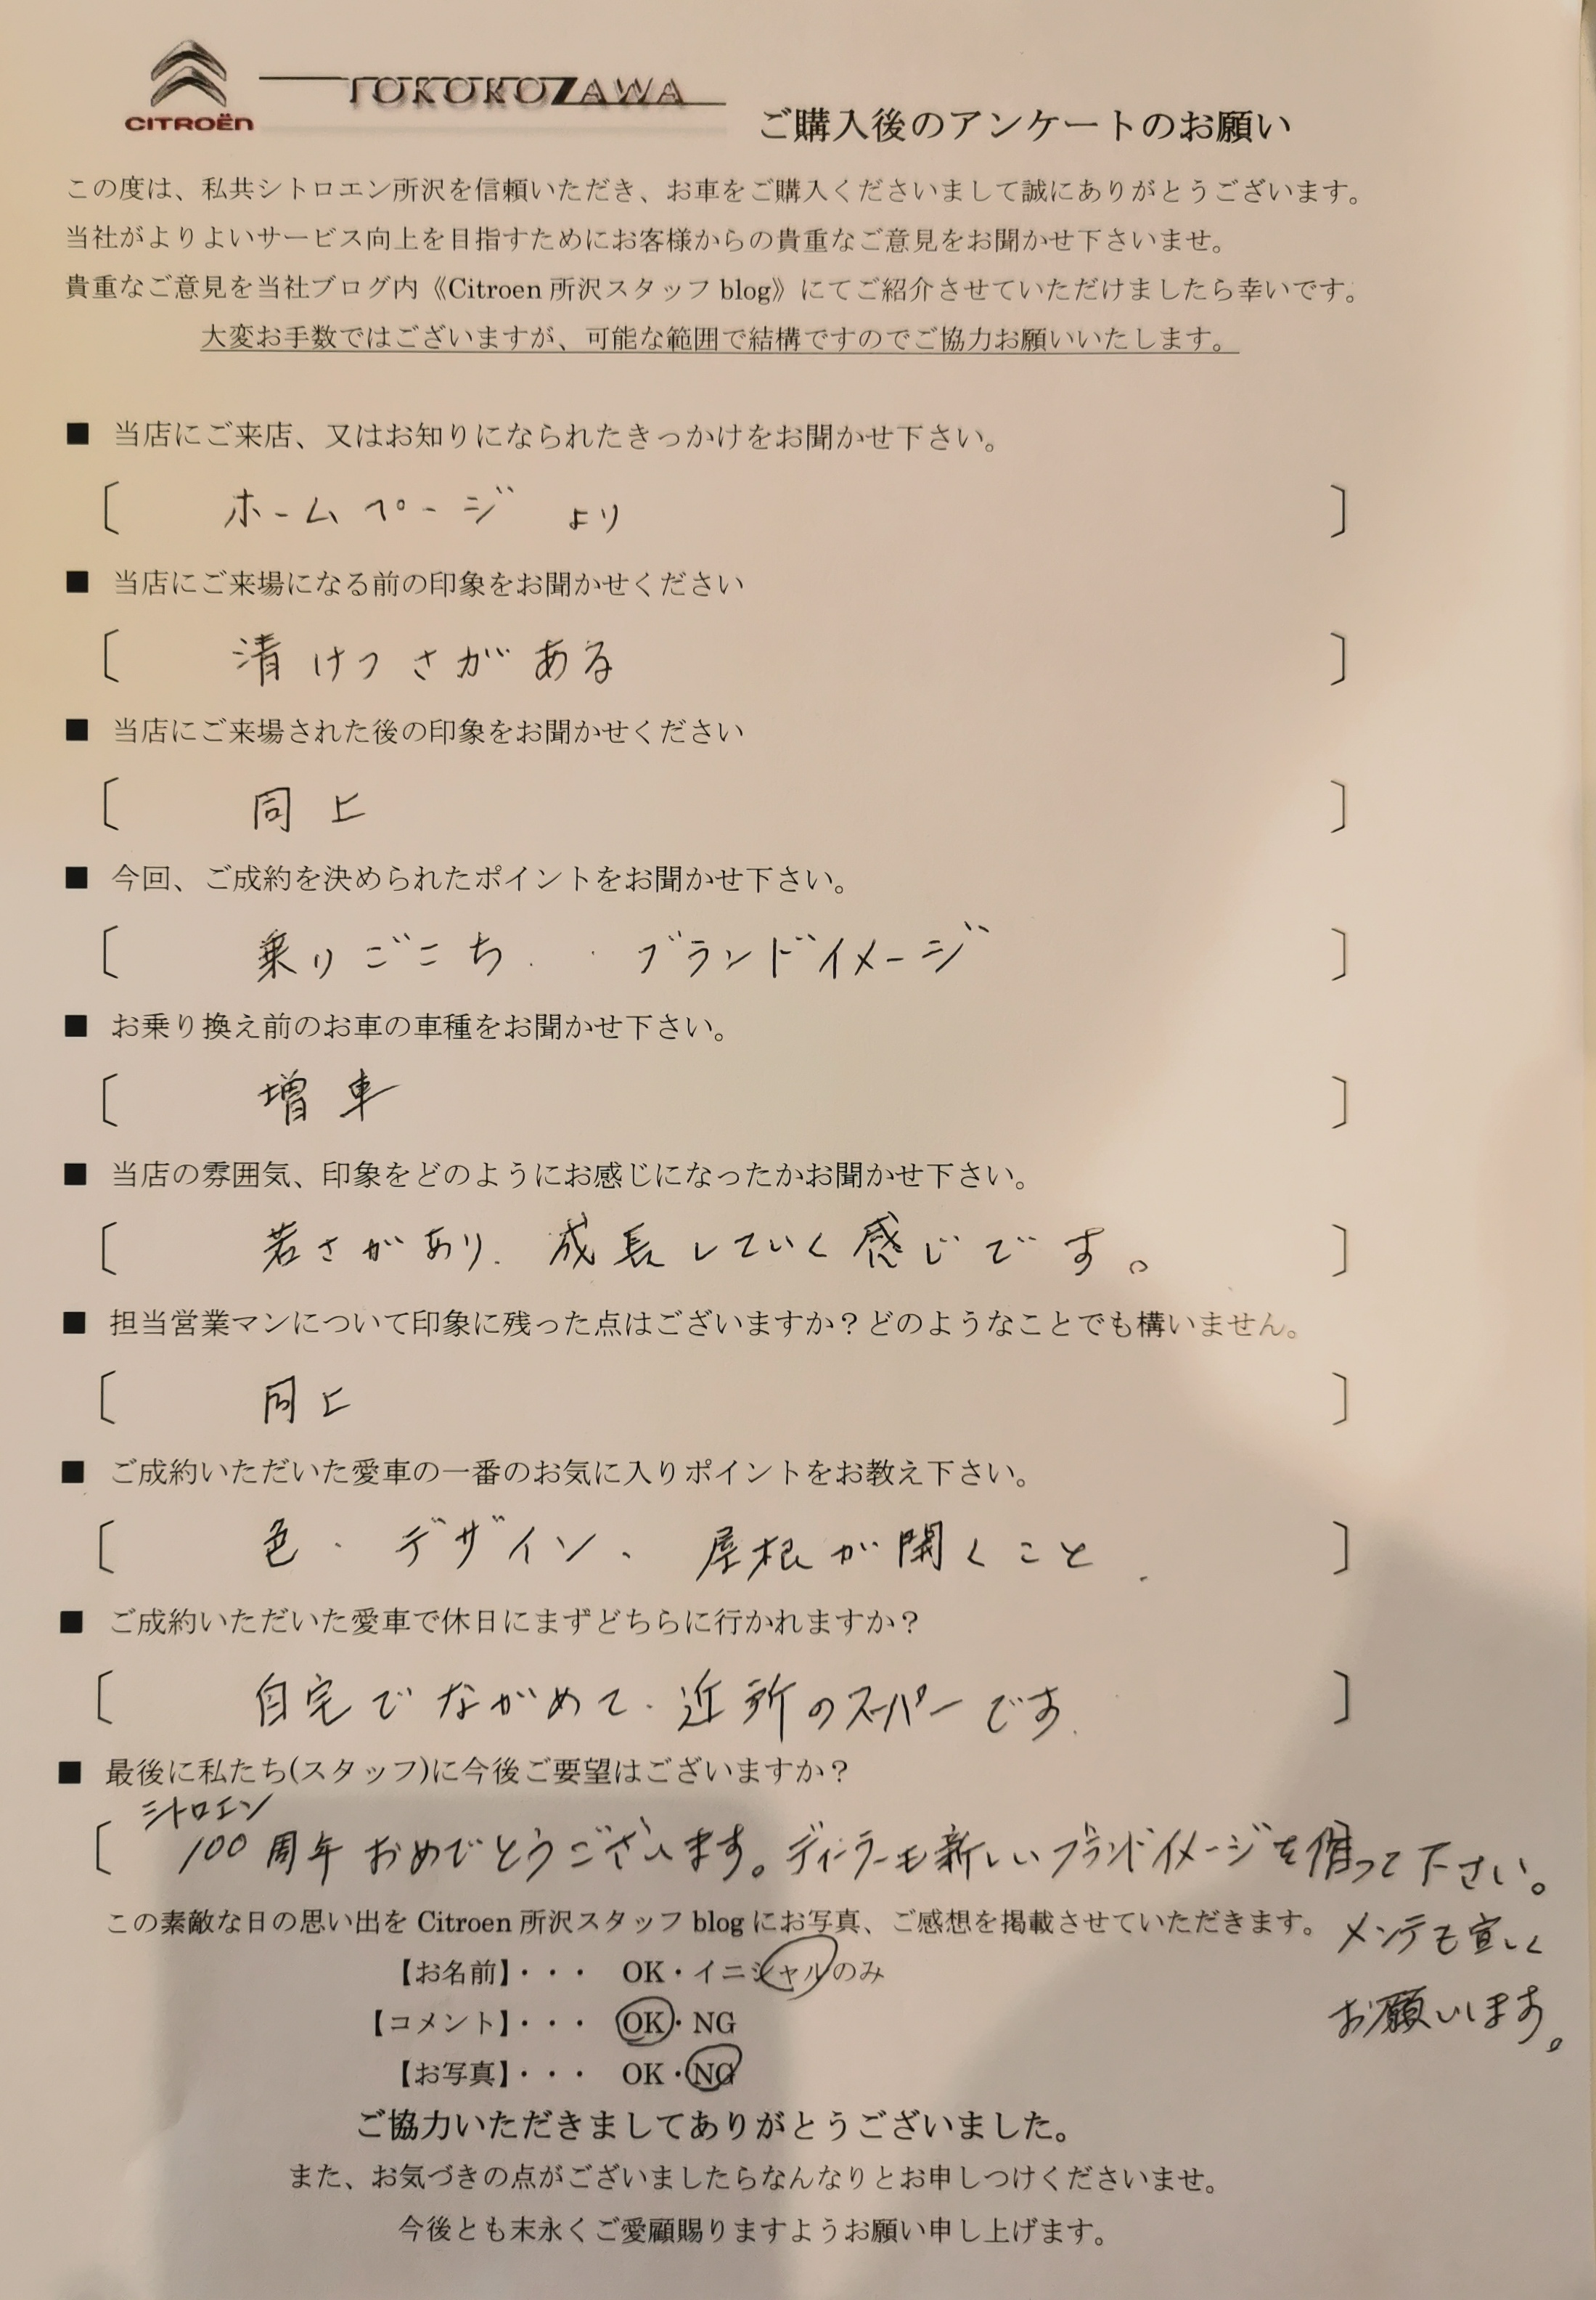 CITROËN
TOKOROZAWA
ご購入後のアンケートのお願い
この度は、私共シトロエン所沢を信頼いただき、お車をご購入くださいまして誠にありがとうございます。
当社がよりよいサービス向上を目指すためにお客様からの貴重なご意見をお聞かせ下さいませ。
貴重なご意見を当社ブログ内《Citroen 所沢スタッフ blog》にてご紹介させていただけましたら幸いです。
大変お手数ではございますが、可能な範囲で結構ですのでご協力お願いいたします。
■ 当店にご来店、又はお知りになられたきっかけをお聞かせ下さい。
〔 ホームページ より 〕
■ 当店にご来場になる前の印象をお聞かせください
〔 清けつさがある 〕
■ 当店にご来場された後の印象をお聞かせください
〔 同上 〕
■ 今回、ご成約を決められたポイントをお聞かせ下さい。
〔 乗りごこち、ブランドイメージ 〕
■ お乗り換え前のお車の車種をお聞かせ下さい。
〔 増車 〕
■ 当店の雰囲気、印象をどのようにお感じになったかお聞かせ下さい。
〔 若さがあり、成長していく感じです。 〕
■ 担当営業マンについて印象に残った点はございますか？どのようなことでも構いません。
〔 同上 〕
■ ご成約いただいた愛車の一番のお気に入りポイントをお教え下さい。
〔 色、デザイン、屋根が開くこと、 〕
■ ご成約いただいた愛車で休日にまずどちらに行かれますか？
〔 自宅でながめて、近所のスーパーです、 〕
■ 最後に私たち(スタッフ)に今後ご要望はございますか？
シトロエン
〔 100周年おめでとうございます。ディーラーも新しいブランドイメージを作って下さい。
メンテも宜しく
お願いします。
この素敵な日の思い出を Citroen 所沢スタッフ blog にお写真、ご感想を掲載させていただきます。
【お名前】・・・ OK・イニシャルのみ
【コメント】・・・ OK・NG
【お写真】・・・ OK・NG
ご協力いただきましてありがとうございました。
また、お気づきの点がございましたらなんなりとお申しつけくださいませ。
今後とも末永くご愛顧賜りますようお願い申し上げます。